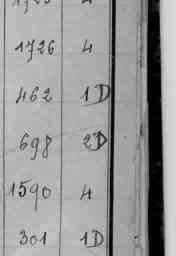 1726 4
462 1D
698 2D
1590 4
301 1D